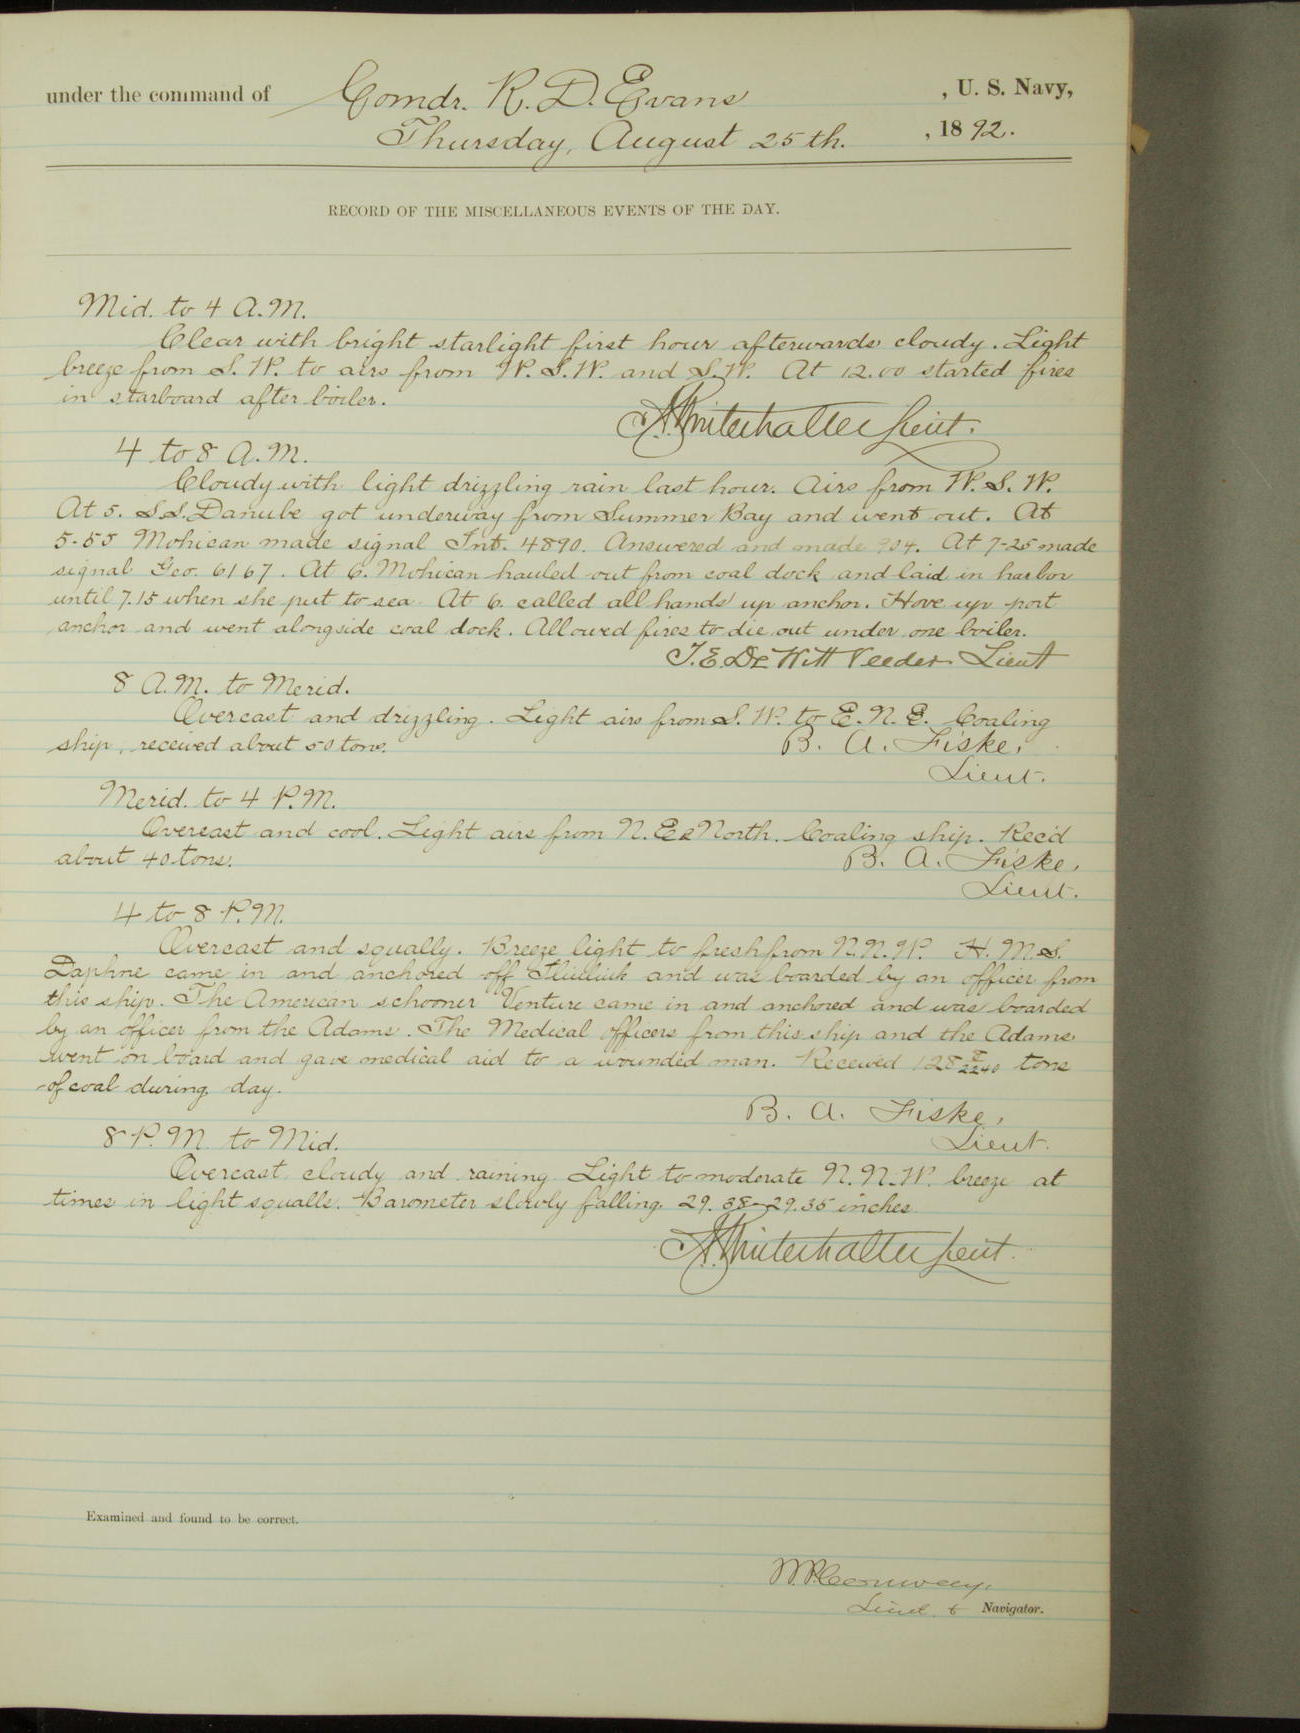 under the command of Comdr. R. D. Evans , U. S. Navy,
Thursday, August 25th. , 1892.
RECORD OF THE MISCELLANEOUS EVENTS OF THE DAY.
Mid. to 4 A.M.
Clear with bright starlight first hour afterwards cloudy. Light
breeze from S.W. to airs from W.S.W. and S.W. At 12.00 started fires
in starboard after boiler.
Winterhalter Lieut.
4 to 8 A.M.
Cloudy with light drizzling rain last hour. Airs from W.S.W.
At 5. S.S. Danube got underway from Summer Bay and went out. At
5-55 Mohican made signal Int. 4890. Answered and made 904. At 7-25 made
signal Geo. 6167. At 6. Mohican hauled out from coal dock and laid in harbor
until 7.15 when she put to sea. At 6. called all hands up anchor. Hove up port
anchor and went alongside coal dock. Allowed fires to die out under one boiler.
T. E. DeWitt Veeder. Lieut
8 A.M. to Merid.
Overcast and drizzling. Light airs from S.W. to E.N.E. Coaling
ship, received about 50 tons.
B. A. Fiske,
Lieut.
Merid. to 4 P.M.
Overcast and cool. Light airs from N.E & North. Coaling ship. Rec'd
about 40 tons.
B. A. Fiske,
Lieut.
4 to 8 P.M.
Overcast and squally. Breeze light to fresh from N.N.W. H.M.S.
Daphne came in and anchored off Iliuliuk and was boarded by an officer from
this ship. The American schooner Venture came in and anchored and was boarded
by an officer from the Adams. The Medical officers from this ship and the Adams
went on board and gave medical aid to a wounded man. Received 128 tons
of coal during day.
B. A. Fiske,
Lieut.
8 P.M. to Mid.
Overcast cloudy and raining. Light to moderate N.N.W. breeze at
times in light squalls. Barometer slowly falling. 29.38-29.35 inches.
Winterhalter Lieut.
Examined and found to be correct.
W.P. Conway,
Lieut. & Navigator.